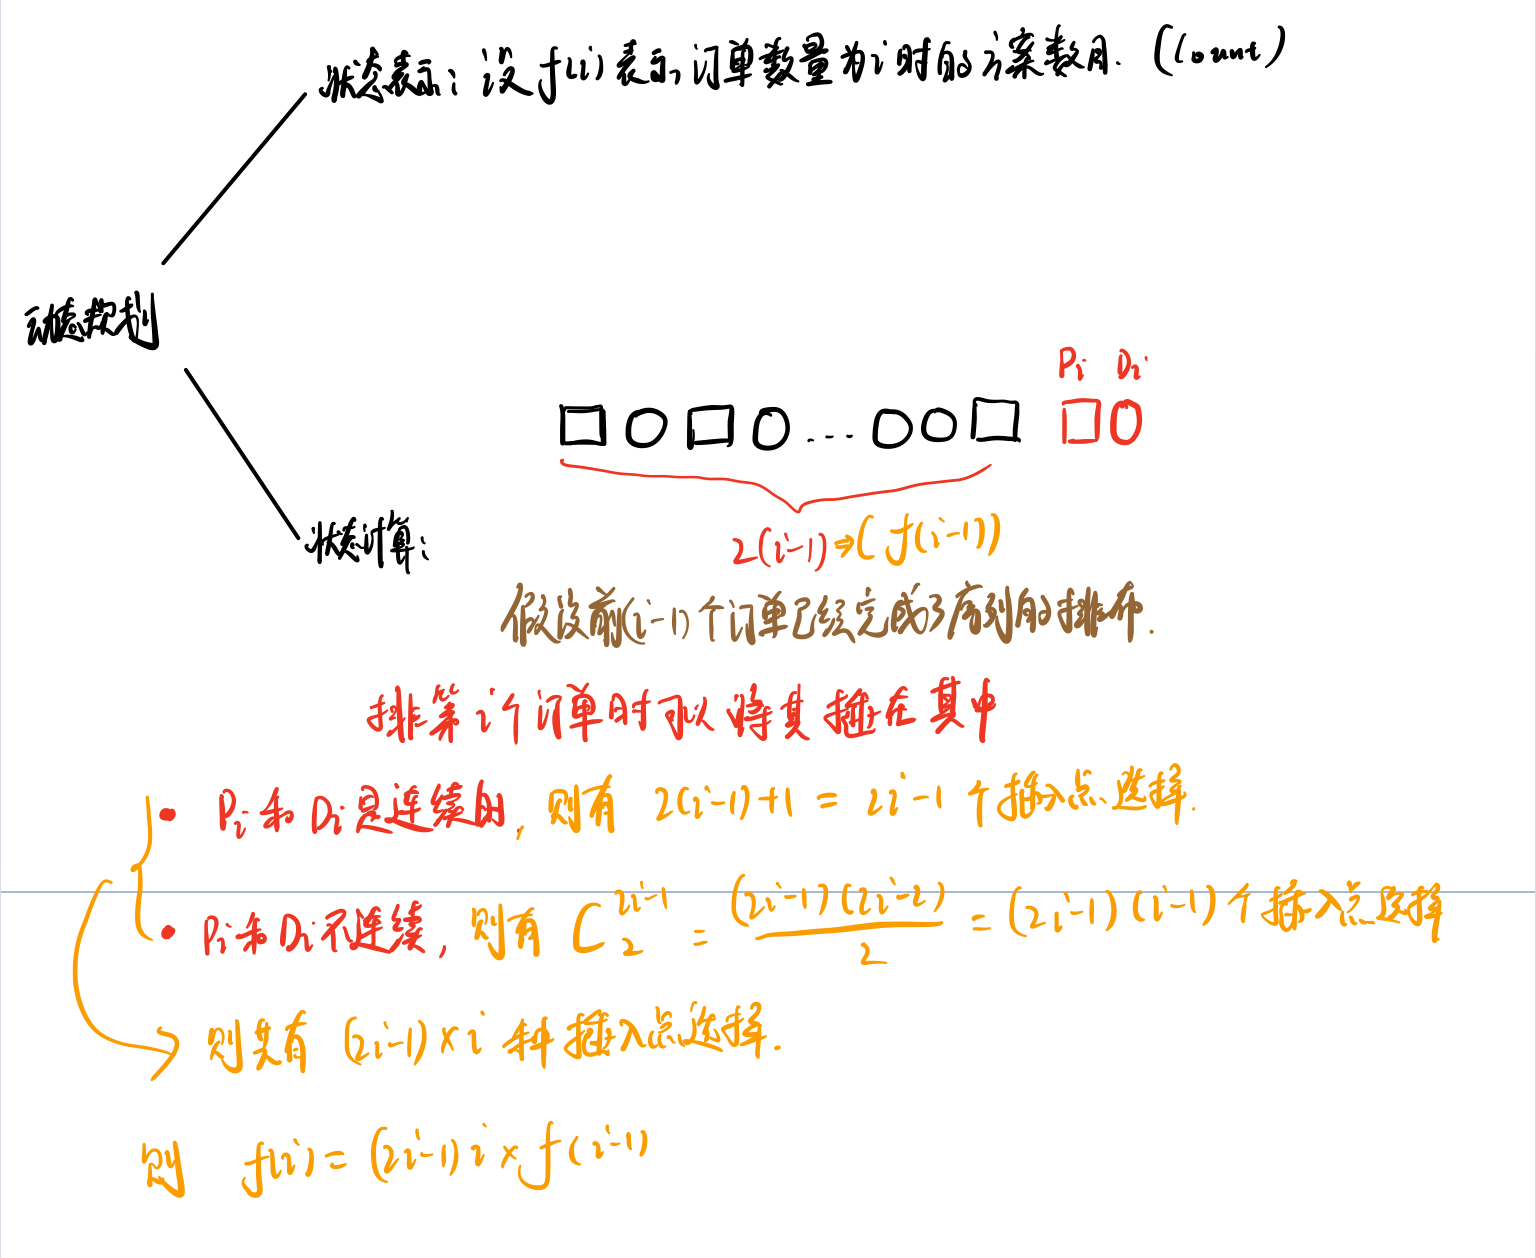 状态表示：设 f(i) 表示订单数量为 i 时的方案数目. (Count)
动态规划
Pi Di
状态计算：
2(i-1) ⇒ (f(i-1))
假设前(i-1)个订单已经完成了序列的排布.
排第 i 个订单时可以将其插在其中
• Pi 和 Di 是连续的, 则有 2(i-1)+1 = 2i-1 个插入点选择.
• Pi 和 Di 不连续, 则有 C_2^{2i-1} = (2i-1)(2i-2)/2 = (2i-1)(i-1) 个插入点选择
则共有 (2i-1)×i 种插入点选择.
则 f(i) = (2i-1)i × f(i-1)